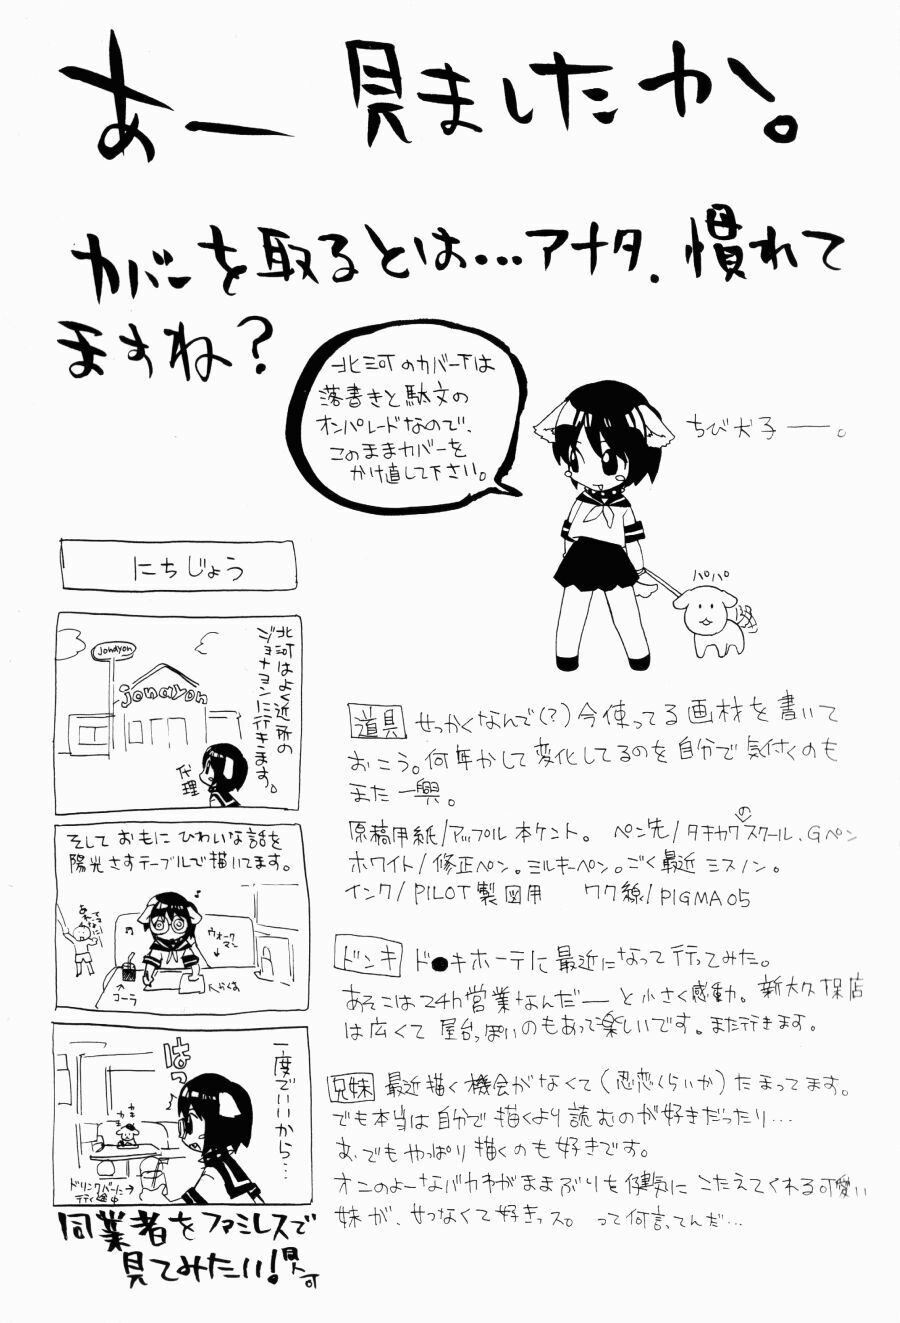 あー 見ましたか。
カバーを取るとは…アナタ、慣れて
ますね？
北河のカバー下は
落書きと駄文の
オンパレードなので、
このままカバーを
かけ直して下さい。
ちび犬子ー。
パパパ
にちじょう
北河はよく近所の
ジョナヨンに行きます。
jonayon
jonayon
代理
そしておもにひわいな話を
陽光さすテーブルで描いてます。
ウォーク
マン
コーラ
らくが
一度でいいから…
はっ
カキ
カキ
ドリンクバーに
行く途中
同業者をファミレスで
見てみたい！
道具 せっかくなんで(?)今使ってる画材を書いて
おこう。何年かして変化してるのを自分で気付くのも
また一興。
原稿用紙/アップル本ケント。 ペン先/タチカワのスクール、Gペン
ホワイト/修正ペン。ミルキーペン。ごく最近ミスノン。
インク/PILOT製図用 ワク線/PIGMA05
ドンキ ド●キホーテに最近になって行ってみた。
あそこは24h営業なんだーと小さく感動。新大久保店
は広くて屋台っぽいのもあって楽しいです。また行きます。
兄妹 最近描く機会がなくて(忍恋くらいか)たまってます。
でも本当は自分で描くより読むのが好きだったり…
あ、でもやっぱり描くのも好きです。
オニのよーなバカわがままぶりを健気にこたえてくれる可愛い
妹が、せつなくて好きっス。って何言ってんだ…